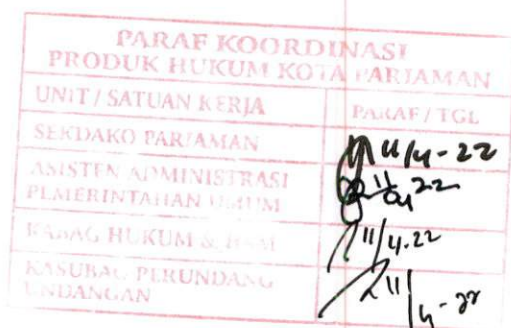 PARAF KOORDINASI
PRODUK HUKUM KOTA PARIAMAN
UNIT / SATUAN KERJA PARAF / TGL
SEKDAKO PARIAMAN 11/4-22
ASISTEN ADMINISTRASI
PEMERINTAHAN UMUM 11/04 22
KABAG HUKUM & HAM 11/4.22
KASUBAG PERUNDANG
UNDANGAN 11/4-22